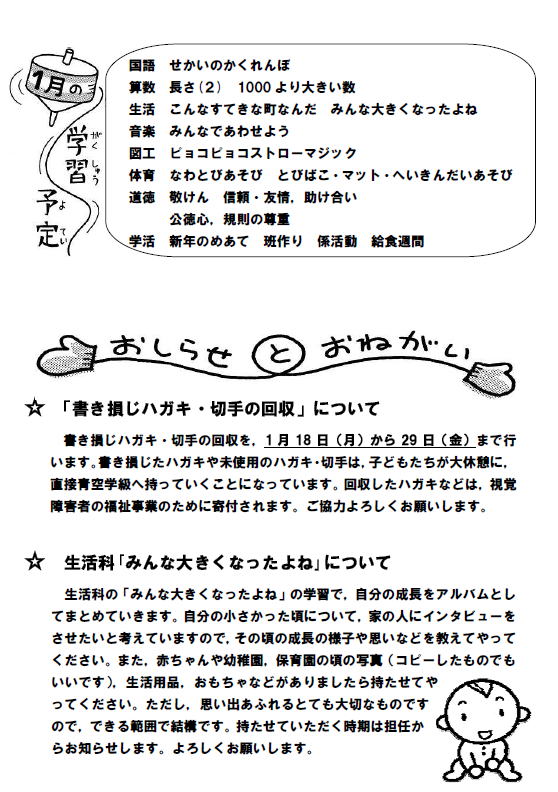 1月の学習予定
がくしゅうよてい
国語 せかいのかくれんぼ
算数 長さ(2) 1000より大きい数
生活 こんなすてきな町なんだ みんな大きくなったよね
音楽 みんなであわせよう
図工 ピョコピョコストローマジック
体育 なわとびあそび とびばこ・マット・へいきんだいあそび
道徳 敬けん 信頼・友情，助け合い
公徳心，規則の尊重
学活 新年のめあて 班作り 係活動 給食週間
おしらせとおねがい
☆ 「書き損じハガキ・切手の回収」について
書き損じハガキ・切手の回収を，1月18日（月）から29日（金）まで行
います。書き損じたハガキや未使用のハガキ・切手は，子どもたちが大休憩に，
直接青空学級へ持っていくことになっています。回収したハガキなどは，視覚
障害者の福祉事業のために寄付されます。ご協力よろしくお願いします。
☆ 生活科「みんな大きくなったよね」について
生活科の「みんな大きくなったよね」の学習で，自分の成長をアルバムとし
てまとめていきます。自分の小さかった頃について，家の人にインタビューを
させたいと考えていますので，その頃の成長の様子や思いなどを教えてやって
ください。また，赤ちゃんや幼稚園，保育園の頃の写真（コピーしたものでも
いいです），生活用品，おもちゃなどがありましたら持たせてや
ってください。ただし，思い出あふれるとても大切なものです
ので，できる範囲で結構です。持たせていただく時期は担任か
らお知らせします。よろしくお願いします。